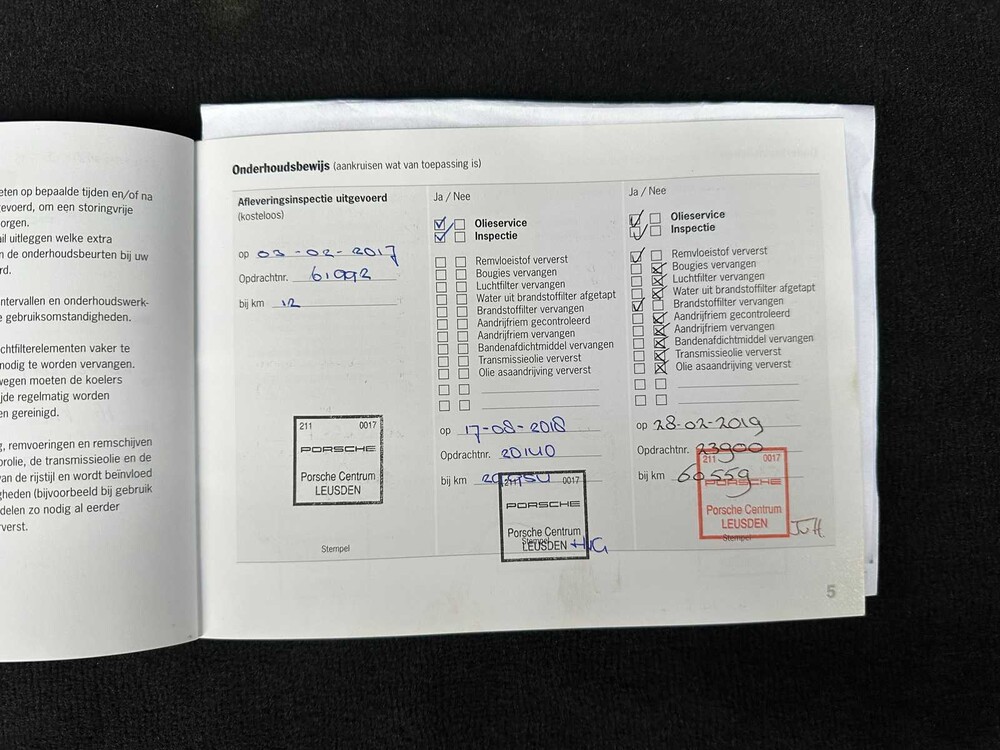 eten op bepaalde tijden en/of na
evoerd, om een storingvrije
orgen.
ail uitleggen welke extra
n de onderhoudsbeurten bij uw
rd.
ntervallen en onderhoudswerk-
e gebruiksomstandigheden.
chtfilterelementen vaker te
nodig te worden vervangen.
wegen moeten de koelers
ijde regelmatig worden
en gereinigd.
g, remvoeringen en remschijven
orolie, de transmissieolie en de
van de rijstijl en wordt beïnvloed
gheden (bijvoorbeeld bij gebruik
delen zo nodig al eerder
verst.
Onderhoudsbewijs (aankruisen wat van toepassing is)
Afleveringsinspectie uitgevoerd
(kosteloos)
op 03-02-2017
Opdrachtnr. 61992
bij km 12
211 0017
PORSCHE
Porsche Centrum
LEUSDEN
Stempel
Ja / Nee
Olieservice
Inspectie
Remvloeistof ververst
Bougies vervangen
Luchtfilter vervangen
Water uit brandstoffilter afgetapt
Brandstoffilter vervangen
Aandrijfriem gecontroleerd
Aandrijfriem vervangen
Bandenafdichtmiddel vervangen
Transmissieolie ververst
Olie asaandrijving ververst
op 17-08-2018
Opdrachtnr. 20140
bij km
211 0017
PORSCHE
Porsche Centrum
LEUSDEN
Stempel
HvG
Ja / Nee
Olieservice
Inspectie
Remvloeistof ververst
Bougies vervangen
Luchtfilter vervangen
Water uit brandstoffilter afgetapt
Brandstoffilter vervangen
Aandrijfriem gecontroleerd
Aandrijfriem vervangen
Bandenafdichtmiddel vervangen
Transmissieolie ververst
Olie asaandrijving ververst
op 28-02-2019
Opdrachtnr. 23900
bij km 60559
211 0017
PORSCHE
Porsche Centrum
LEUSDEN
Stempel
5